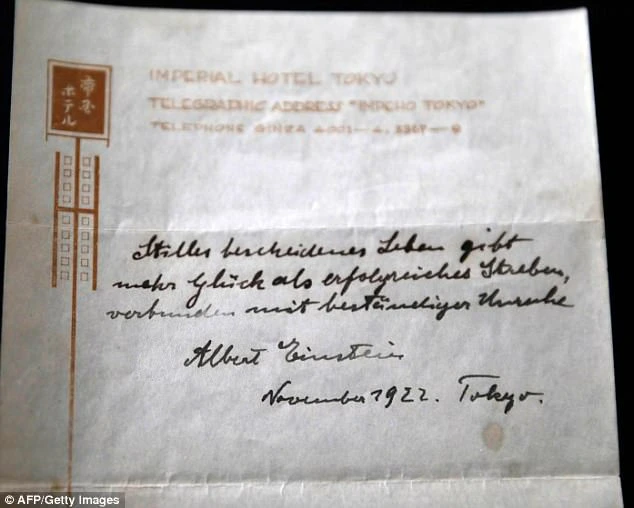 帝国
ホテル
IMPERIAL HOTEL TOKYO
TELEGRAPHIC ADDRESS "IMPEHO TOKYO"
TELEPHONE GINZA
Stilles bescheidenes Leben gibt
mehr Glück als erfolgreiches Streben,
verbunden mit beständiger Unruhe
Albert Einstein
November 1922. Tokyo.
© AFP/Getty Images